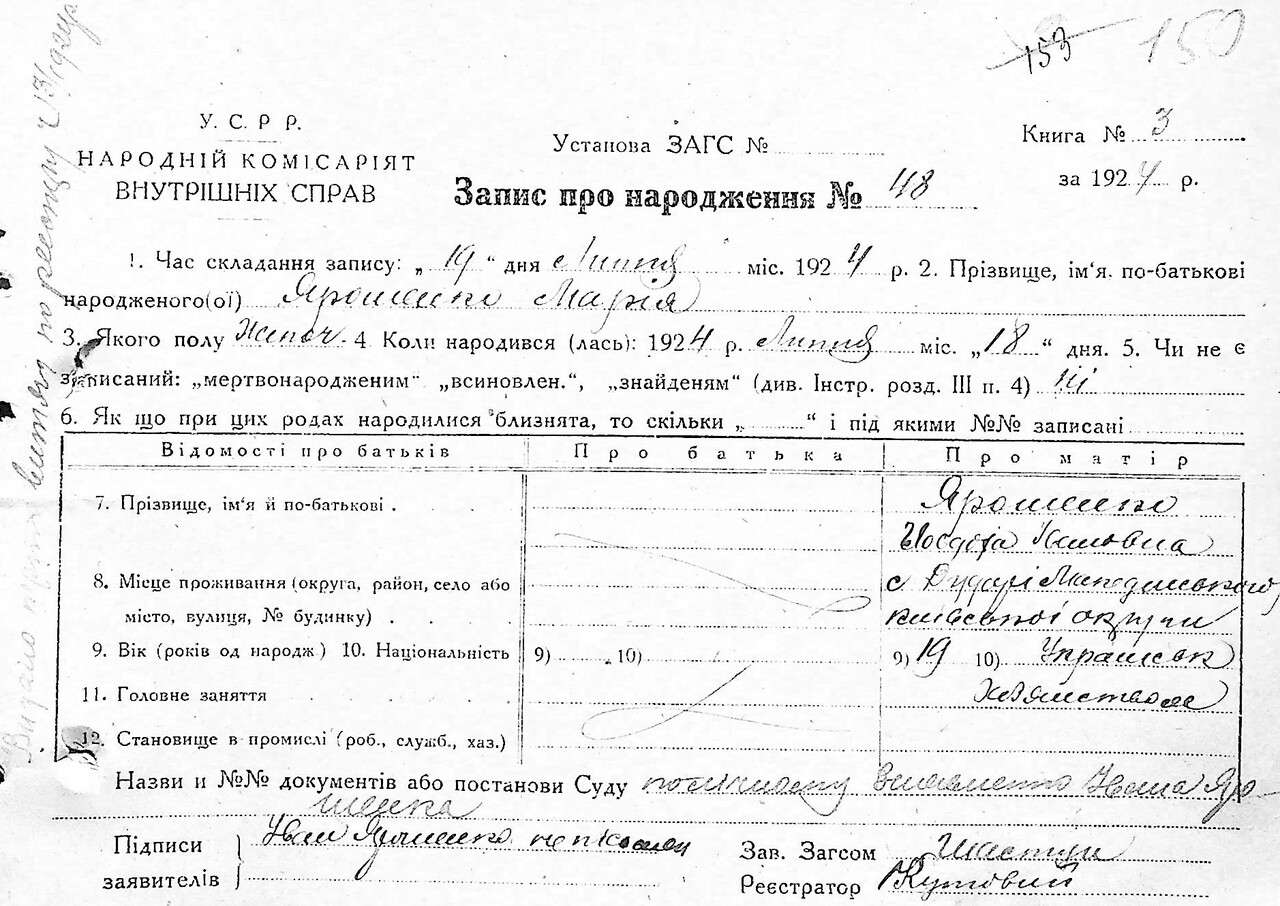 153 150
У. С. Р Р.
НАРОДНІЙ КОМІСАРІЯТ
ВНУТРІШНІХ СПРАВ
Установа ЗАГС №
Книга № 3
за 1924 р.
Запис про народження № 48
1. Час складання запису: „ 19 “ дня Липня міс. 1924 р. 2. Прізвище, ім'я. по-батькові
народженого(ої) Ярошенко Марія
3. Якого полу Жіноч. 4 Коли народився (лась): 1924 р. Липня міс. „18“ дня. 5. Чи не є
записаний: „мертвонародженим“ „всиновлен.“, „знайденям“ (див. Інстр. розд. III п. 4) Ні
6. Як що при цих родах народилися близнята, то скільки „ “ і під якими №№ записані
Відомості про батьків Про батька Про матір
7. Прізвище, ім'я й по-батькові . Ярошенко
8. Місце проживання (округа, район, село або с Дударі
місто, вулиця, № будинку) . Київської округи
9. Вік (років од народж.) 10. Національність 9) 10) 9) 19 10) Українськ
11. Головне заняття Хазяйством
12. Становище в промислі (роб., служб., хаз.)
Назви и №№ документів або постанови Суду Ивана Яро-
шенка
Підписи Іван Ярошенко Зав. Загсом
заявителів Реєстратор Кутовий
Видано витяг по реєстру